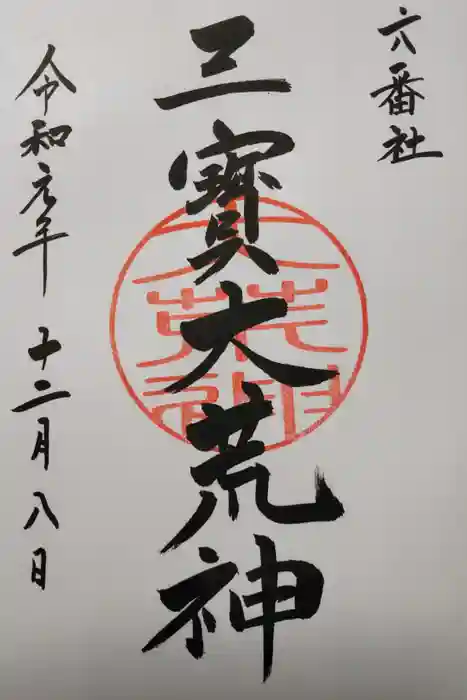 六番社
三寶大荒神
令和元年 十二月八日